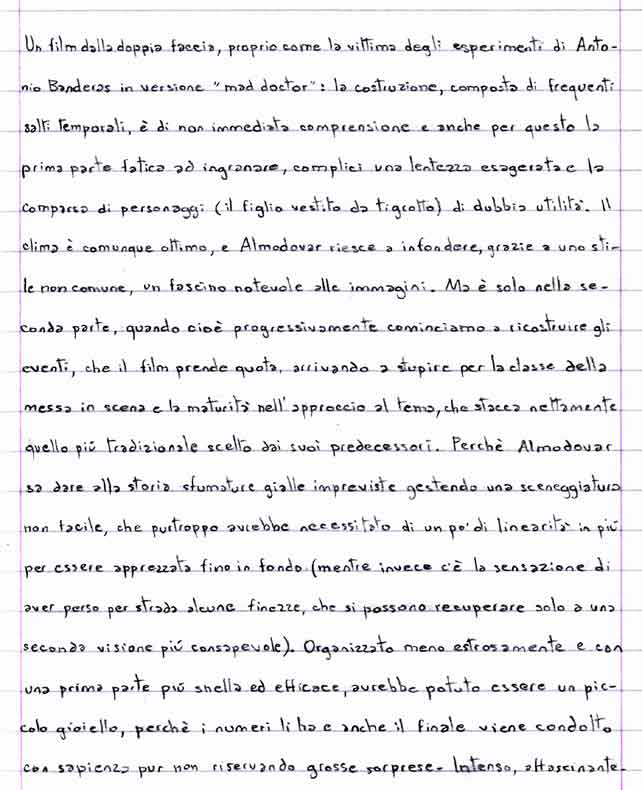 Un film dalla doppia faccia, proprio come la vittima degli esperimenti di Anto-
nio Banderas in versione "mad doctor": la costruzione, composta di frequenti
salti temporali, è di non immediata comprensione e anche per questo la
prima parte fatica ad ingranare, complici una lentezza esagerata e la
comparsa di personaggi (il figlio vestito da tigrotto) di dubbia utilità. Il
clima è comunque ottimo, e Almodovar riesce a infondere, grazie a uno sti-
le non comune, un fascino notevole alle immagini. Ma è solo nella se-
conda parte, quando cioè progressivamente cominciamo a ricostruire gli
eventi, che il film prende quota, arrivando a stupire per la classe della
messa in scena e la maturità nell'approccio al tema, che stacca nettamente
quello più tradizionale scelto dai suoi predecessori. Perchè Almodovar
sa dare alla storia sfumature gialle impreviste gestendo una sceneggiatura
non facile, che purtroppo avrebbe necessitato di un po' di linearità in più
per essere apprezzata fino in fondo (mentre invece c'è la sensazione di
aver perso per strada alcune finezze, che si possono recuperare solo a una
seconda visione più consapevole). Organizzato meno estrosamente e con
una prima parte più snella ed efficace, avrebbe potuto essere un pic-
colo gioiello, perchè i numeri li ha e anche il finale viene condotto
con sapienza pur non riservando grosse sorprese. Intenso, affascinante.